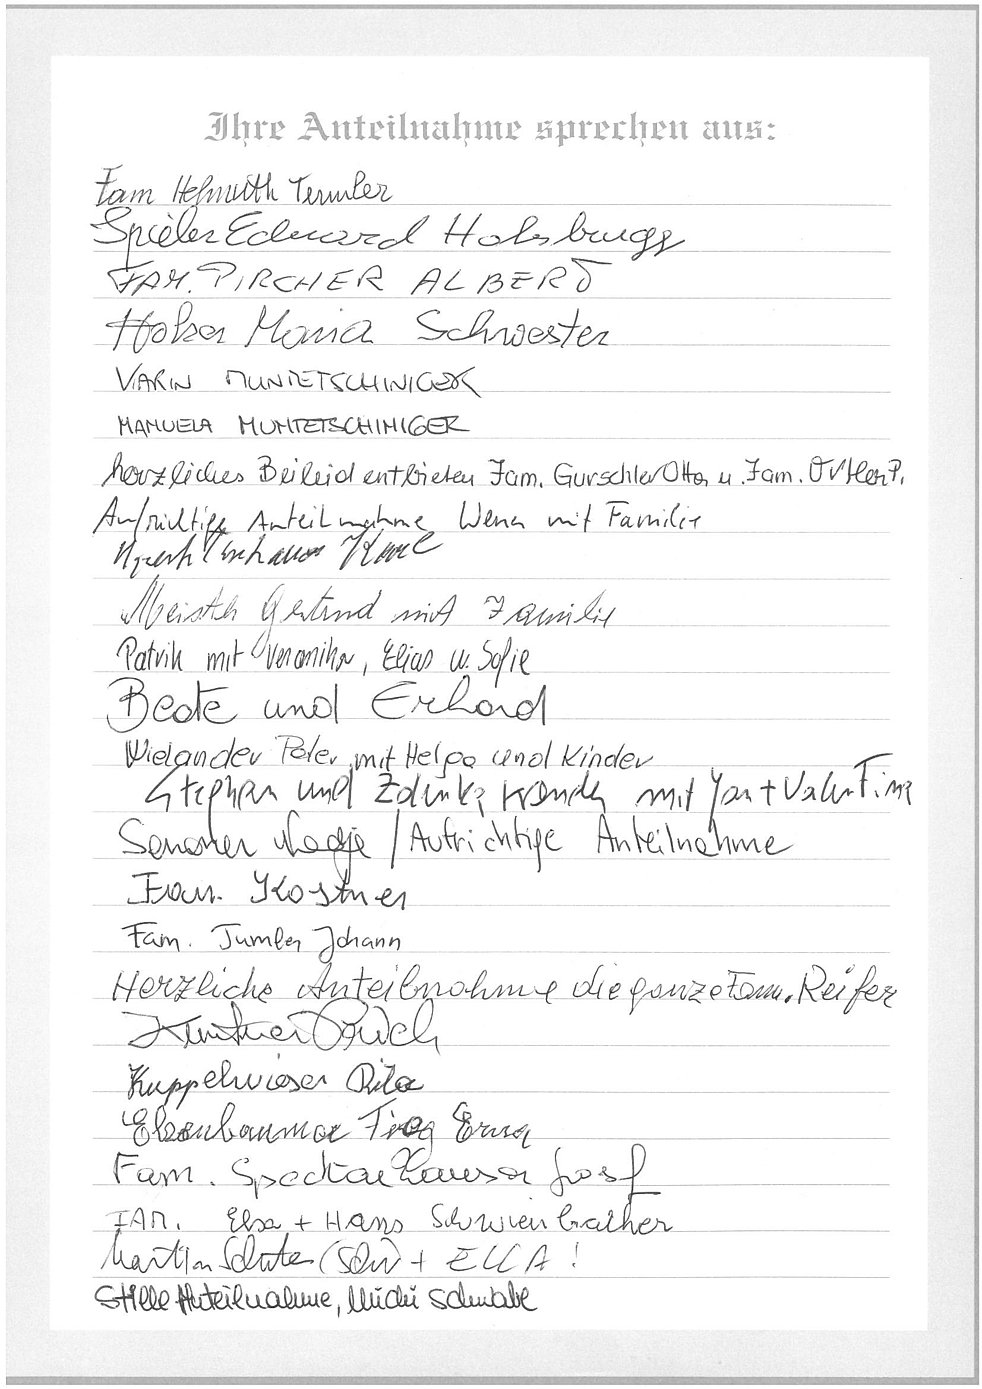 Ihre Anteilnahme sprechen aus:
Fam Helmuth Termler
Spieler Eduard Holzbrugg
FAM. PIRCHER ALBERT
Holzer Maria Schwester
KARIN MUNTETSCHINIGER
MANUELA MUNTETSCHINIGER
herzliches Beileid entbieten Fam. Gurschler Otto u. Fam. Ortler P.
Aufrichtige Anteilnahme Wena mit Familie
Karl
Gertrud mit Familie
Patrik mit Veronika, Elias u. Sofie
Beate und Erhard
Wielander Peter mit Helga und Kinder
Stephan und Zdenka mit Jan + Valentina
Senoner Nadja / Aufrichtige Anteilnahme
Fam. Kostner
Fam. Tumler Johann
Herzliche Anteilnahme die ganze Fam. Reifer
Kuntner
Kuppelwieser Rita
Elzenbaumer Erna
Fam. Spechtenhauser Josef
FAM. Elsa + Hans Schwienbacher
Martin + ELLA!
Stille Anteilnahme, Michi Schwabl